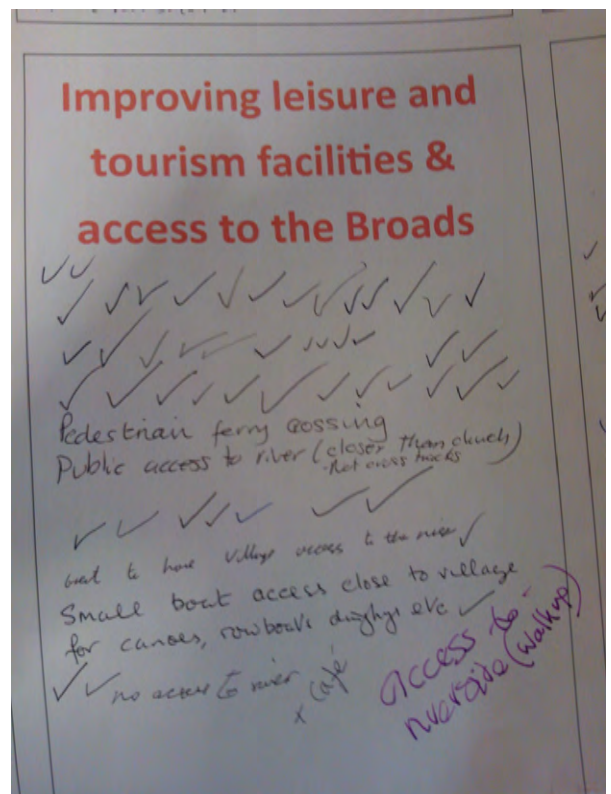 Improving leisure and
tourism facilities &
access to the Broads
Pedestrian ferry crossing
Public access to river (closer than church)
-Not cross tracks
Great to have village access to the river
Small boat access close to village
for canoes, rowboats dinghys etc
no access to river
x café
access to
riverside (walkup)